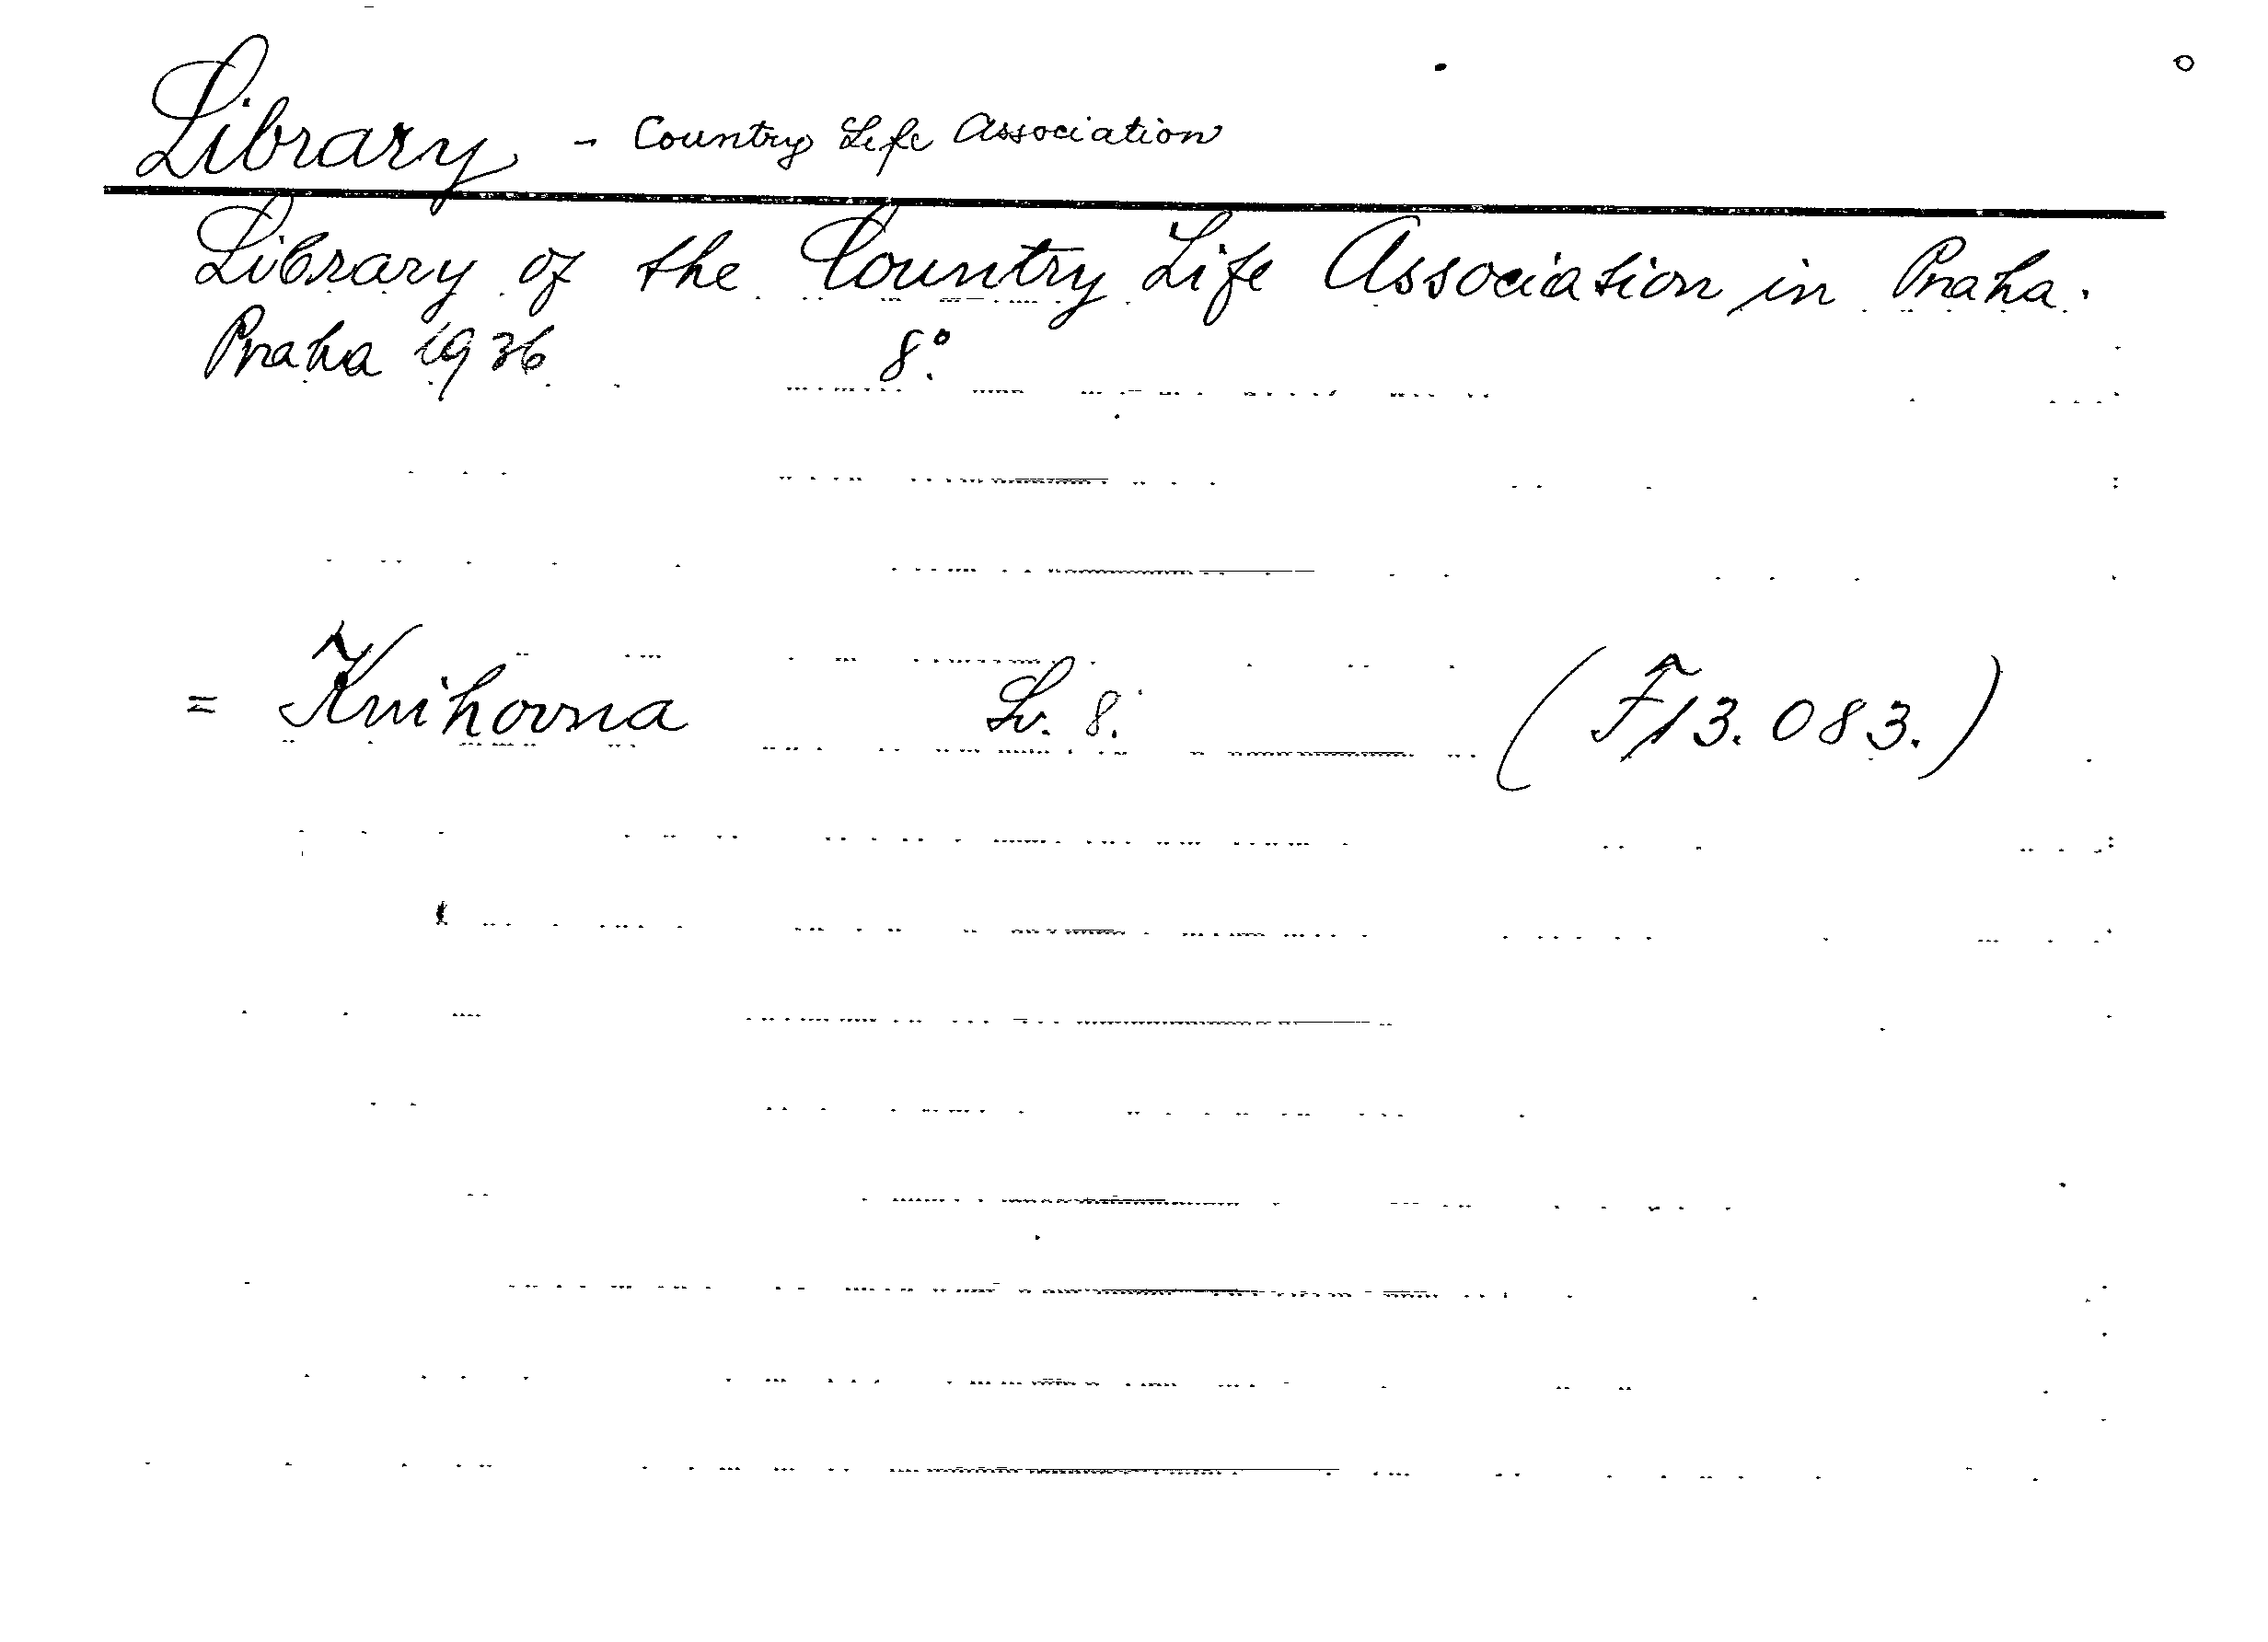 Library - Country Life Association
Library of the Country Life Association in Praha.
Praha 1936 8°.
= Knihovna Sv. 8. (F 13.083.)